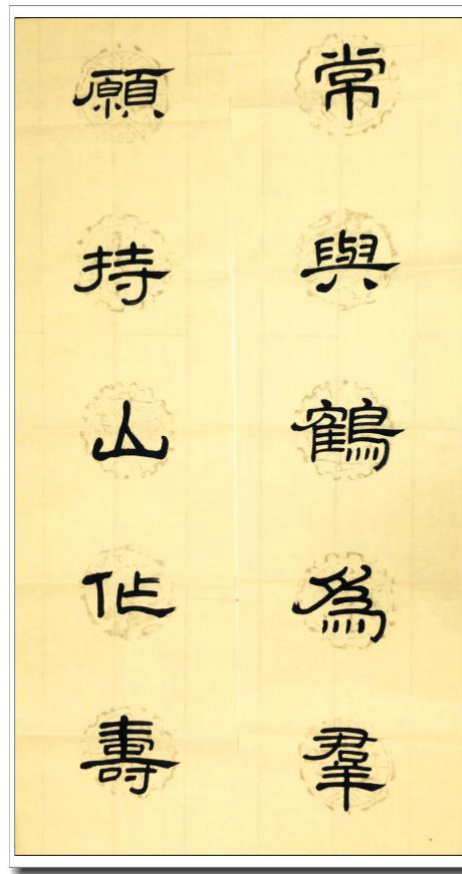 常與鶴爲羣
願持山作壽